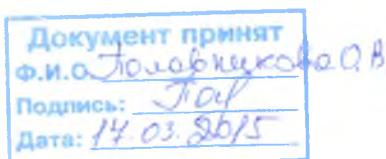 Документ принят
Ф.И.О. Половникова О.В
Подпись: Пол
Дата: 17.03.2015